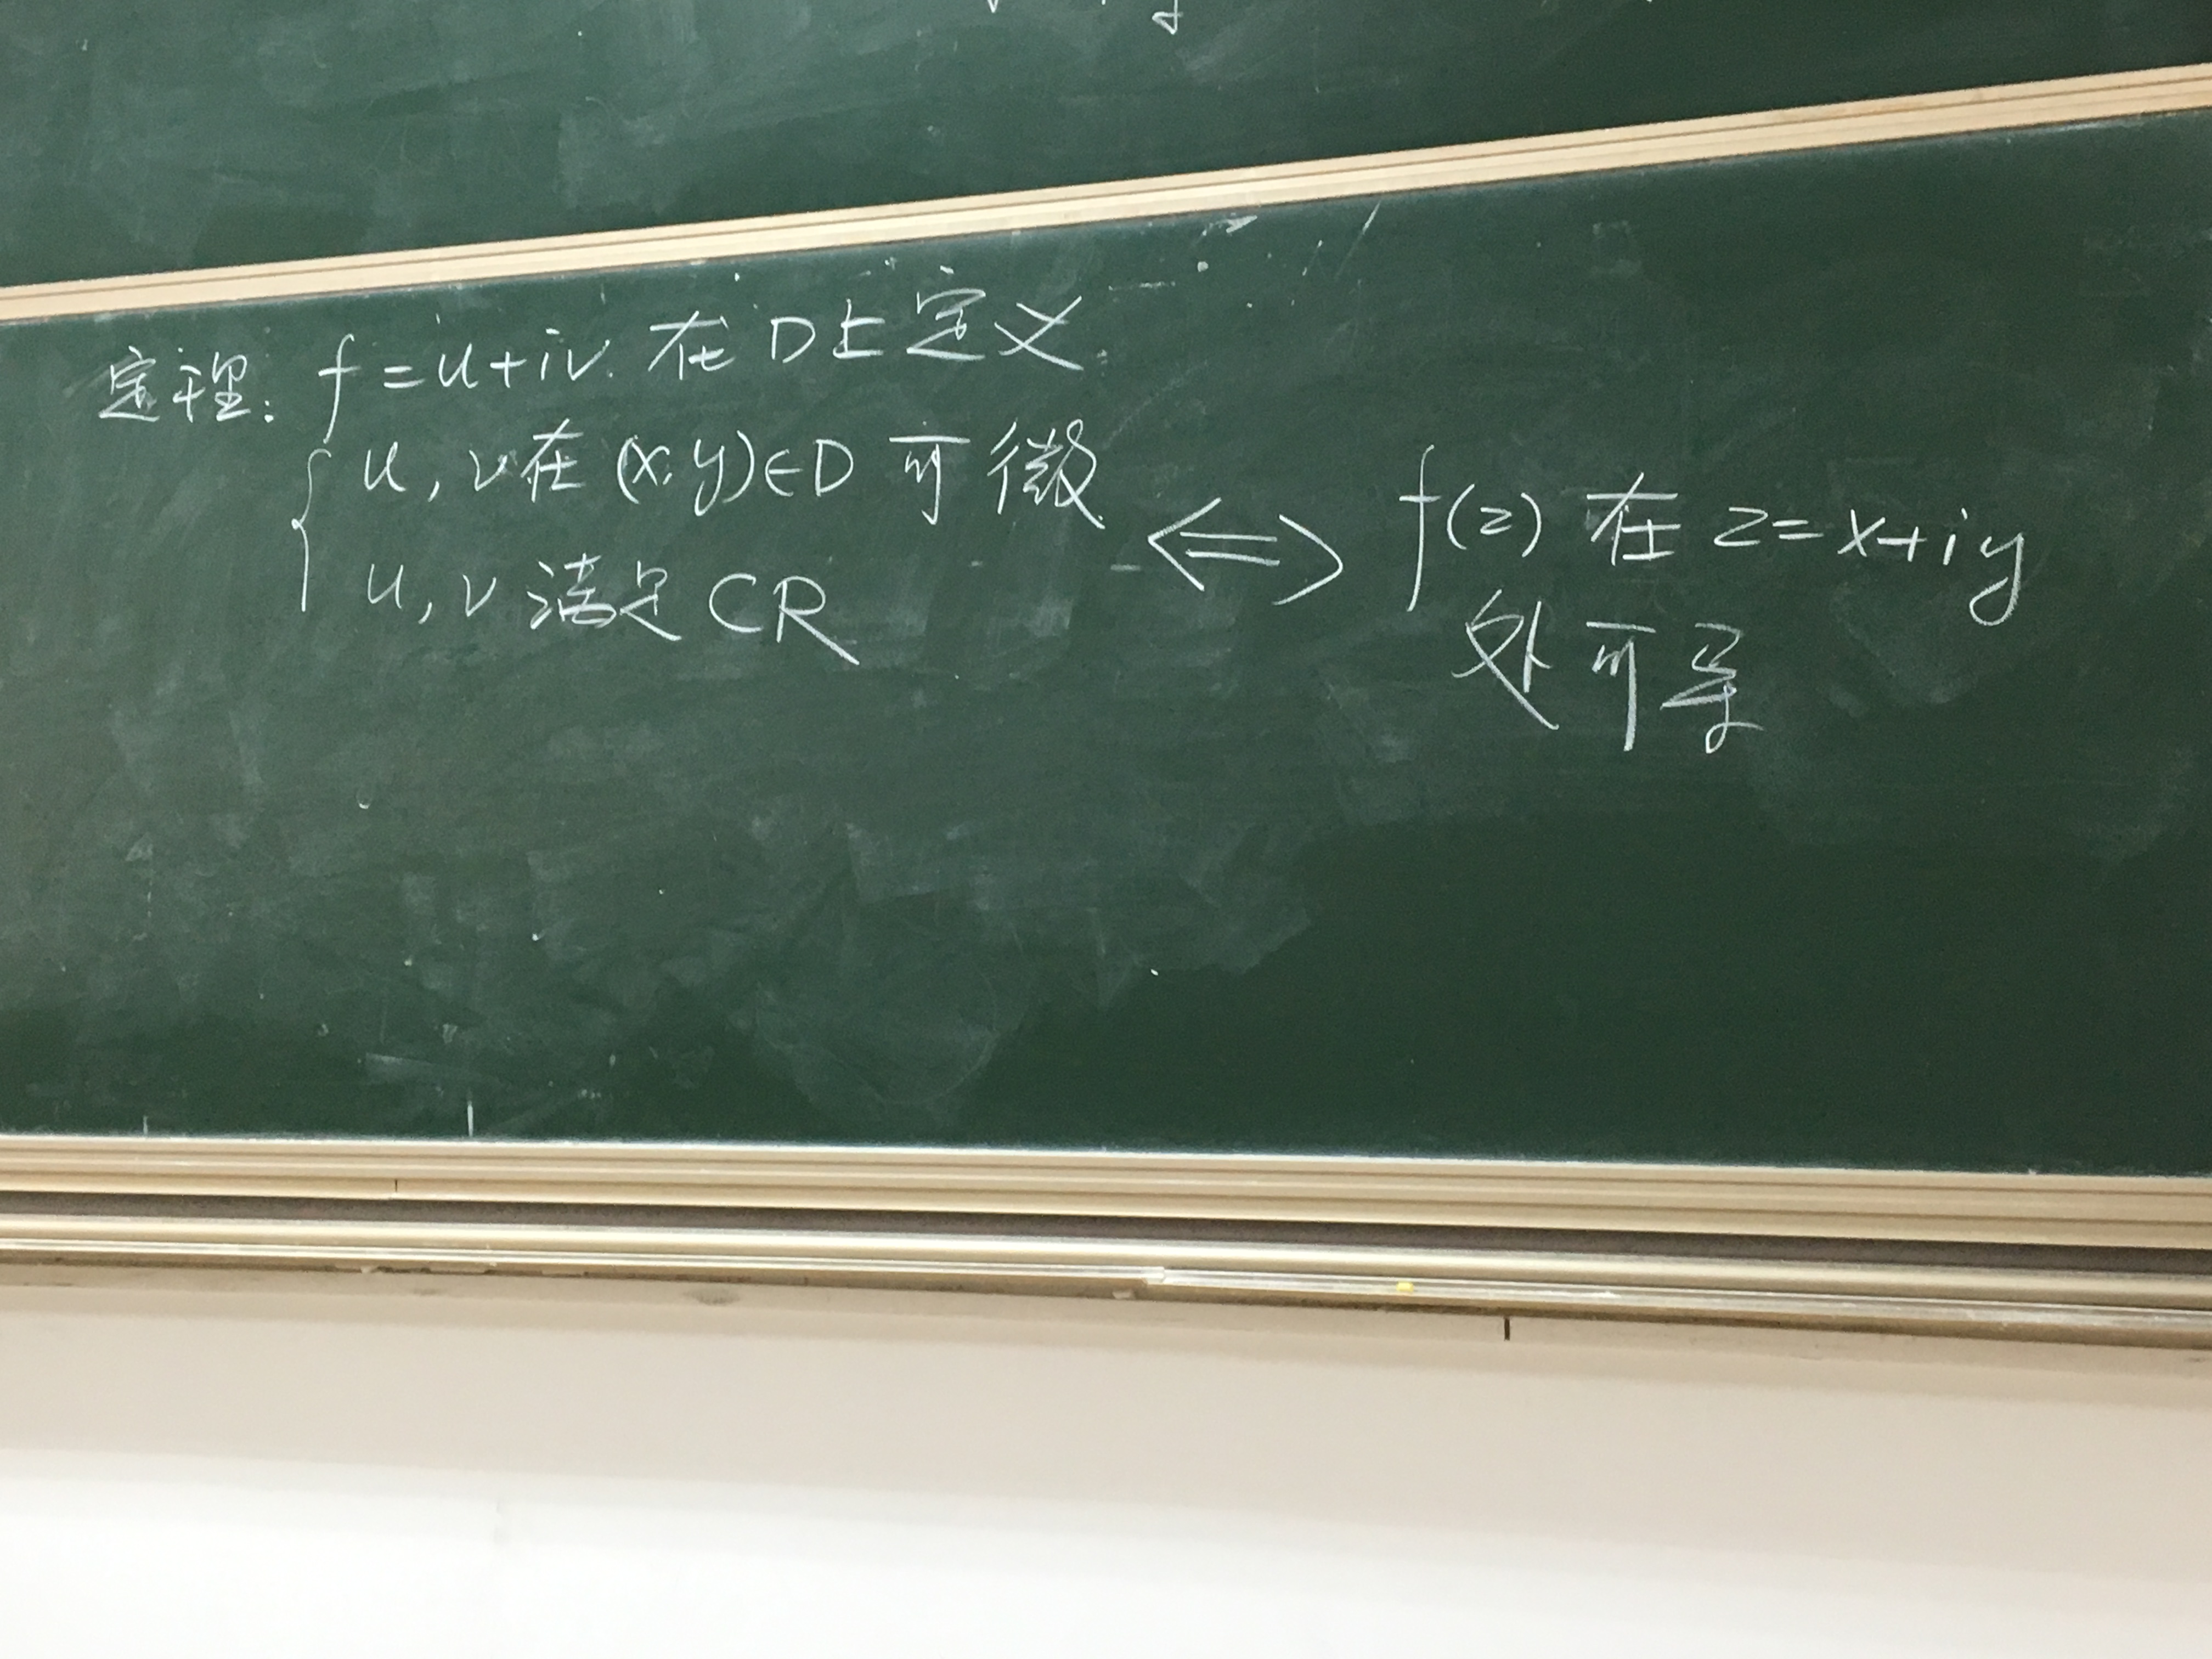 定理: f=u+iv. 在D上定义.
u,v在(x,y)∈D可微.
u,v满足CR
⇔
f(z)在z=x+iy
处可导